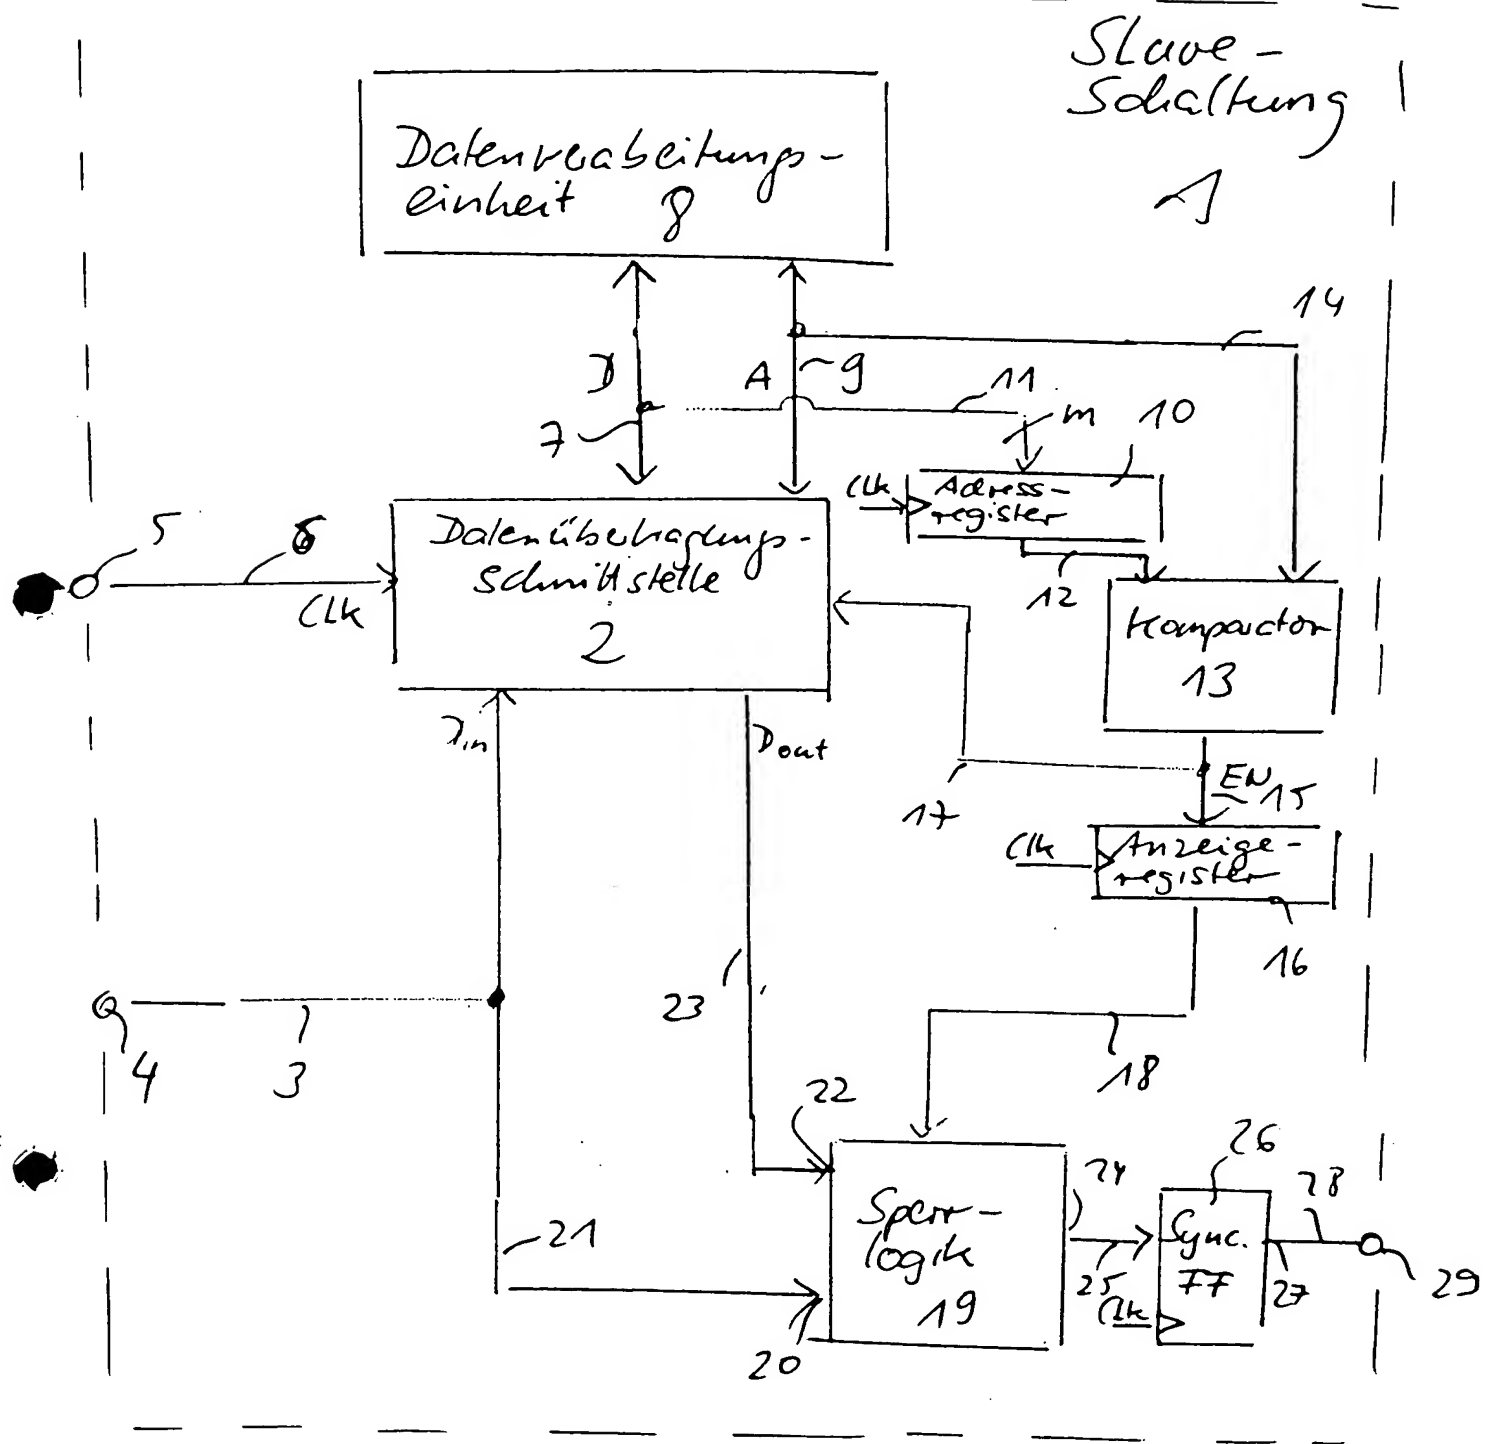 Slave-
Schaltung
1
Datenverabeitungs-
einheit 8
14
D
A
9
11
7
m
10
Clk
Adress-
register
5
6
Clk
Datenübertragungs-
schnittstelle
2
12
Komparator
13
Din
Dout
EN
15
17
Clk
Anzeige-
register
16
23
4
3
18
22
26
24
28
Sperr-
logik
19
Sync.
FF
21
25
Clk
27
29
20